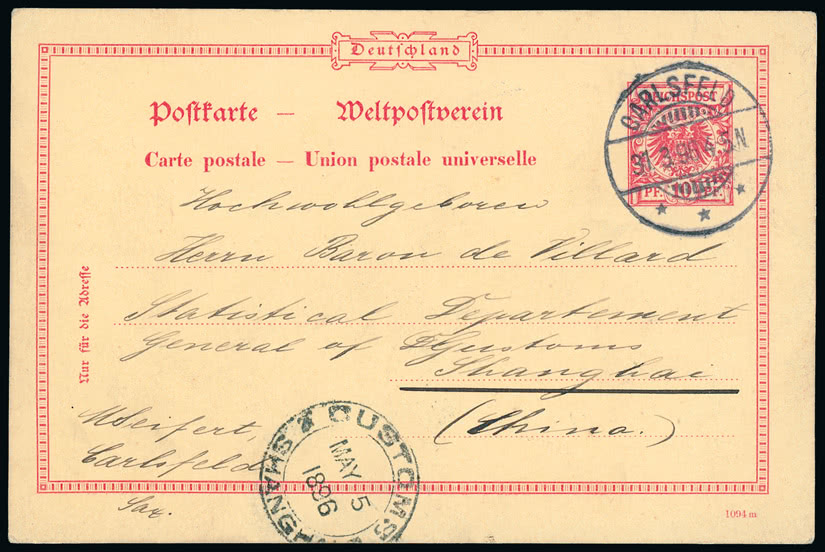 Deutschland
Postkarte — Weltpostverein
Carte postale — Union postale universelle
REICHSPOST
PF. 10 PF.
CARLSFELD
31 3.96 4.5N
Hochwohlgeboren
Herrn Baron de Villard
Statistical Departement
General of Customs
Shanghai
(China.)
Nur für die Adresse
Seifert,
Carlsfeld
Sax.
CUSTOMS
SHANGHAI
MAY 5
1896
1094 m